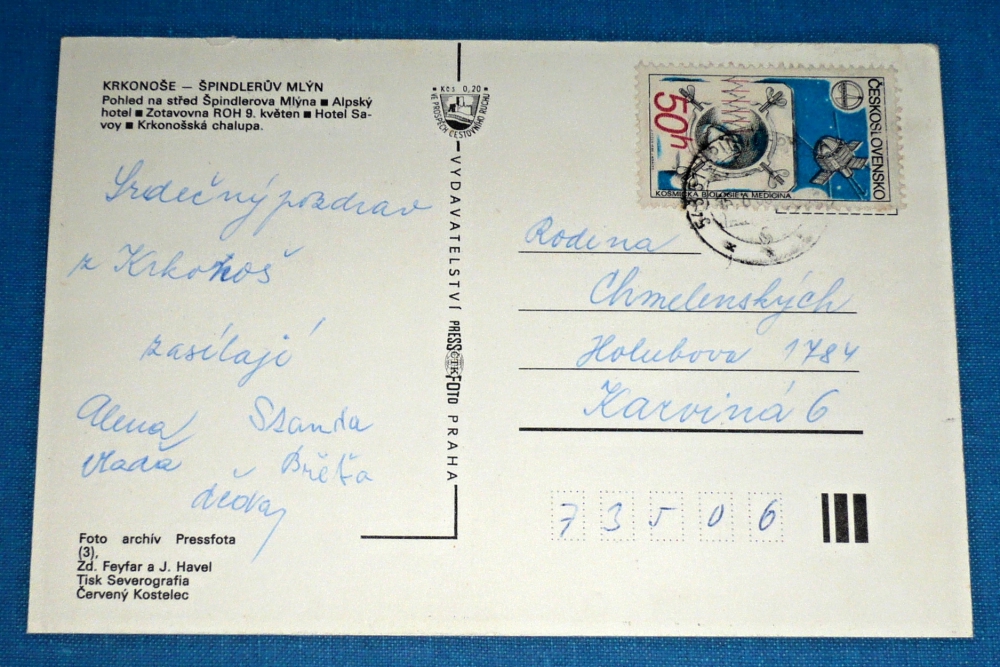 KRKONOŠE — ŠPINDLERŮV MLÝN
Pohled na střed Špindlerova Mlýna ■ Alpský
hotel ■ Zotavovna ROH 9. květen ■ Hotel Sa-
voy ■ Krkonošská chalupa.
Srdečný pozdrav
z Krkonoš
zasílají
Alena Standa
Vlaďa Břéťa
Foto archív Pressfota
(3),
Zd. Feyfar a J. Havel
Tisk Severografia
Červený Kostelec
Kčs 0,20
VE PROSPĚCH CESTOVNÍHO RUCHU
VYDAVATELSTVÍ PRESSFOTO PRAHA
ČTK
50h
ČESKOSLOVENSKO
KOSMICKÁ BIOLOGIE A MEDICINA
Rodina
Chmelenských
Holubova 1784
Karviná 6
73506